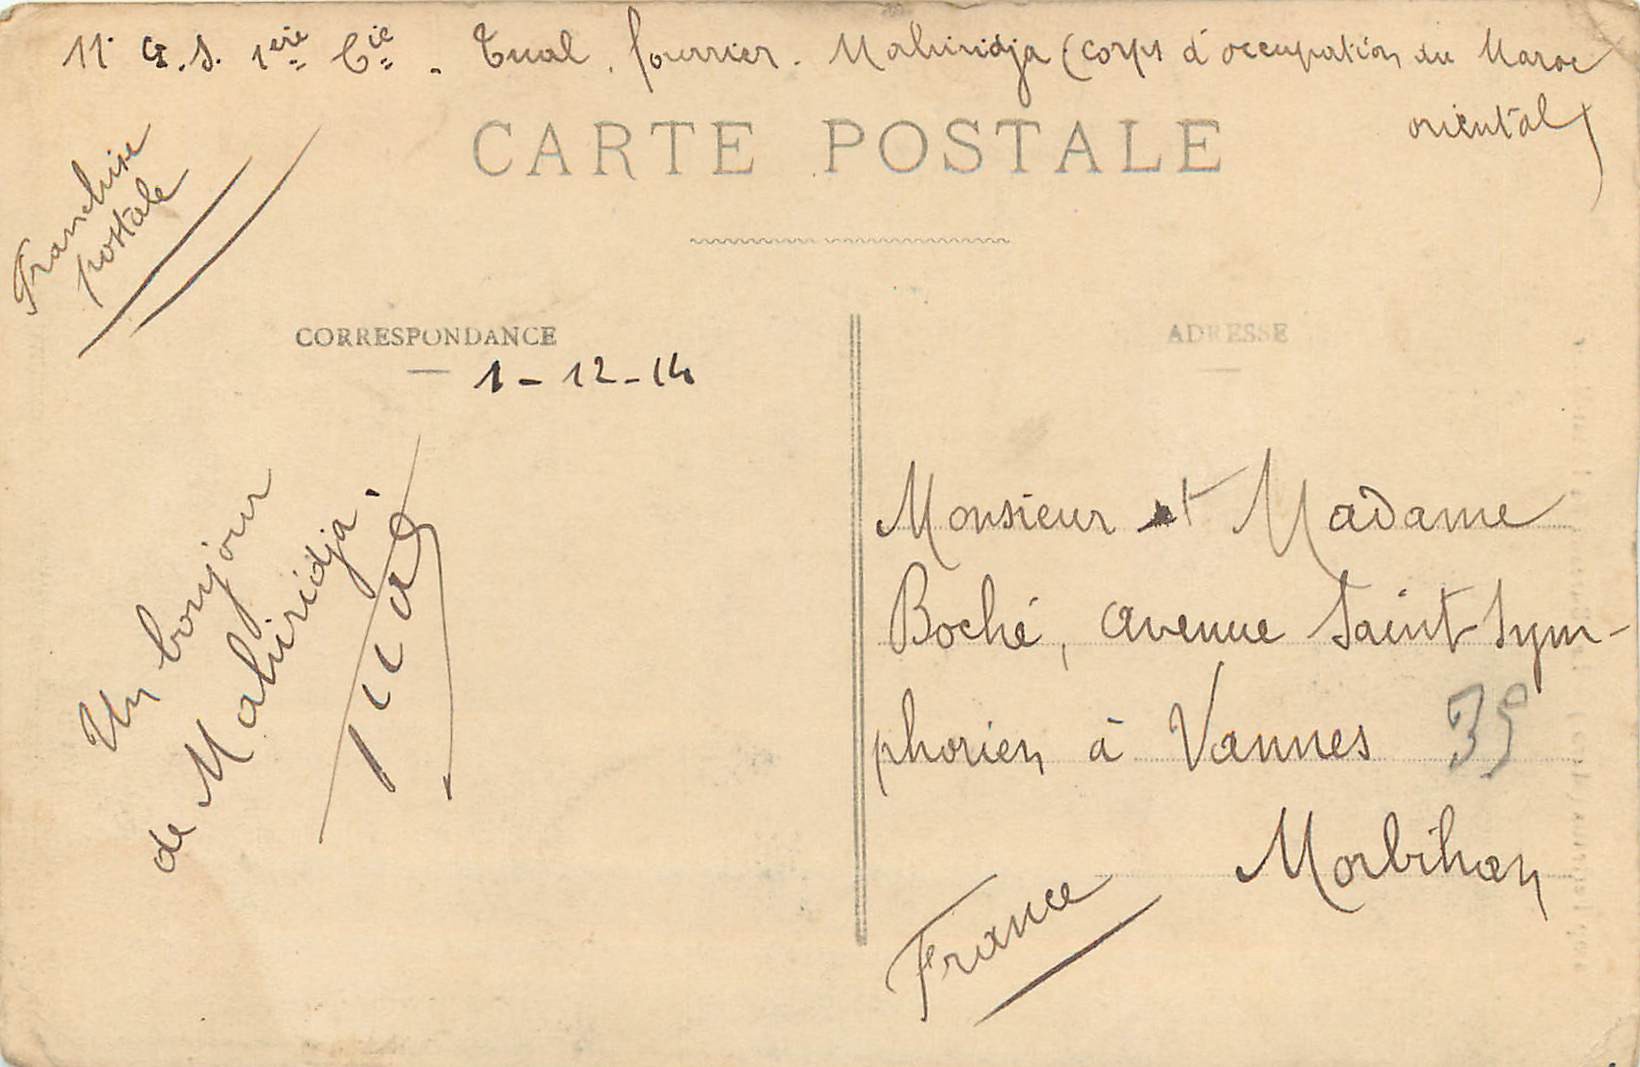 11e G. S. 1ère Cie. Tual, fourrier. Mahiridja (corps d'occupation du Maroc
oriental)
CARTE POSTALE
Franchise
postale
CORRESPONDANCE
ADRESSE
1-12-14
Un bonjour
de Mahiridja.
Tual
Monsieur et Madame
Boché, avenue Saint Sym-
phorien à Vannes
35
Morbihan
France